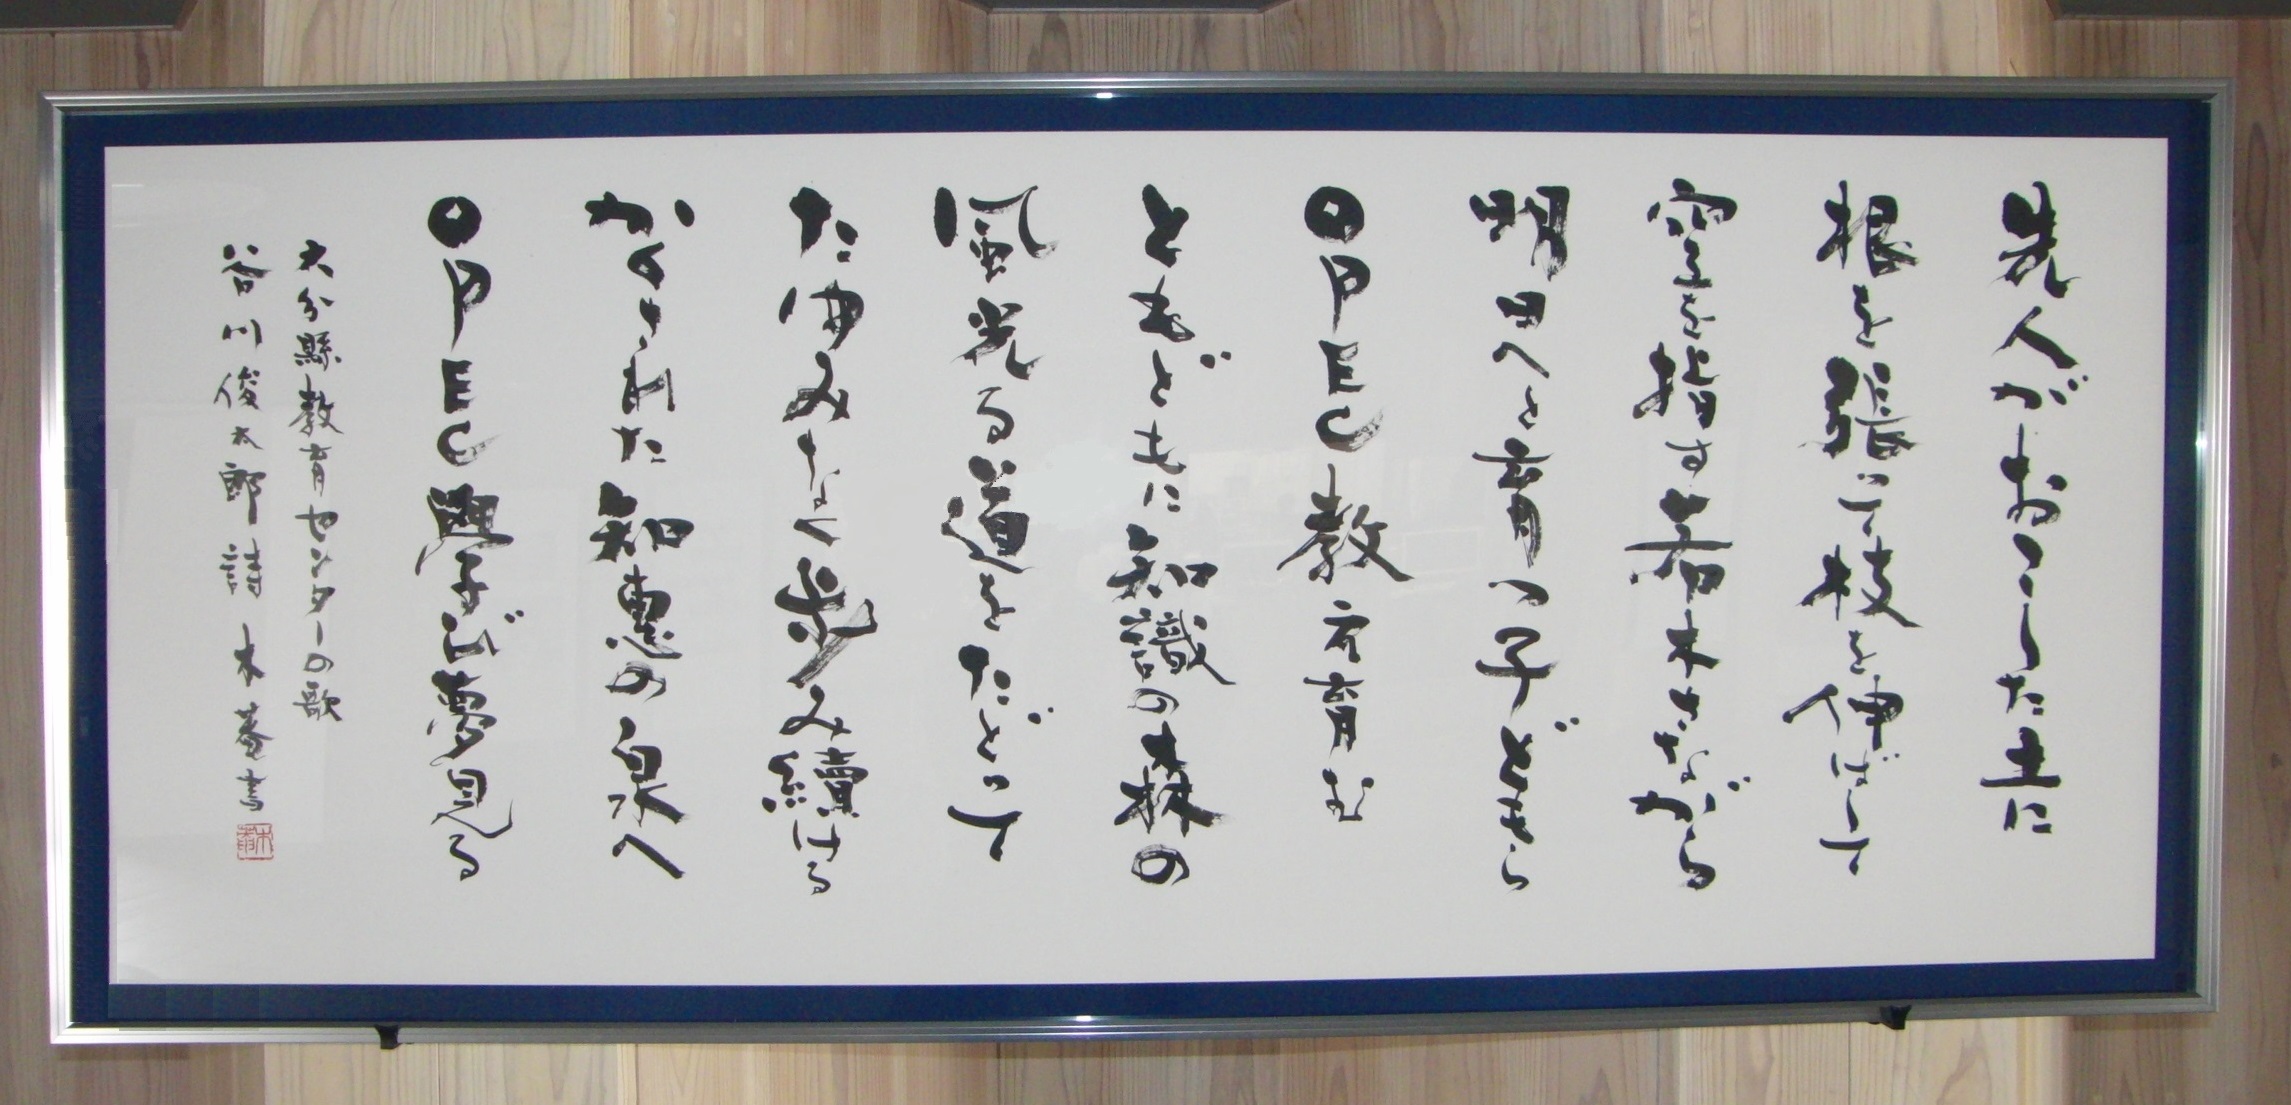 先人がおこした土に
根を張って枝を伸ばして
空を指す若木さながら
明日へと育つ子どもら
OPEC教え育む
ともどもに知識の森の
風光る道をたどって
たゆみなく歩み續ける
かくされた知惠の泉へ
OPEC學び夢見る
大分縣教育センターの歌
谷川俊太郎 詩 木菴書